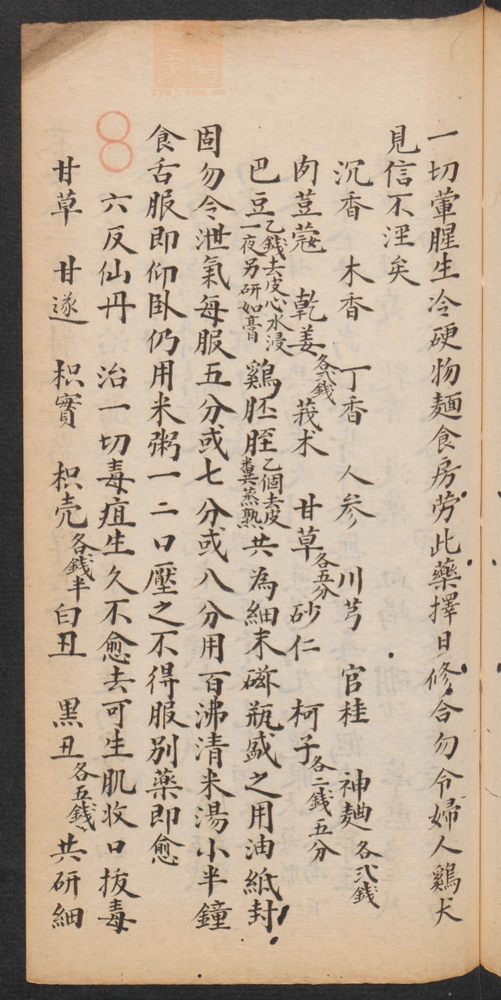 一切葷腥生冷硬物麵食房劳此藥擇日修合勿令婦人鷄犬
見信不湿矣
沉香 木香 丁香 人参 川芎 官桂 神麯各弍錢
肉荳蔻 乾姜各弍錢 莪术 甘草各五分 砂仁 柯子各二錢五分
巴豆乙錢去皮心水浸一夜另研如膏 鷄胵胵乙個去皮糞蒸熟 共為細末磁瓶盛之用油紙封
固勿令泄氣每服五分或七分或八分用百沸清米湯小半鐘
食舌服即仰卧仍用米粥一二口壓之不得服别藥即愈
六反仙丹 治一切毒疽生久不愈去可生肌收口拔毒
甘草 甘遂 枳實 枳壳各錢半 白丑 黑丑各五錢 共研細